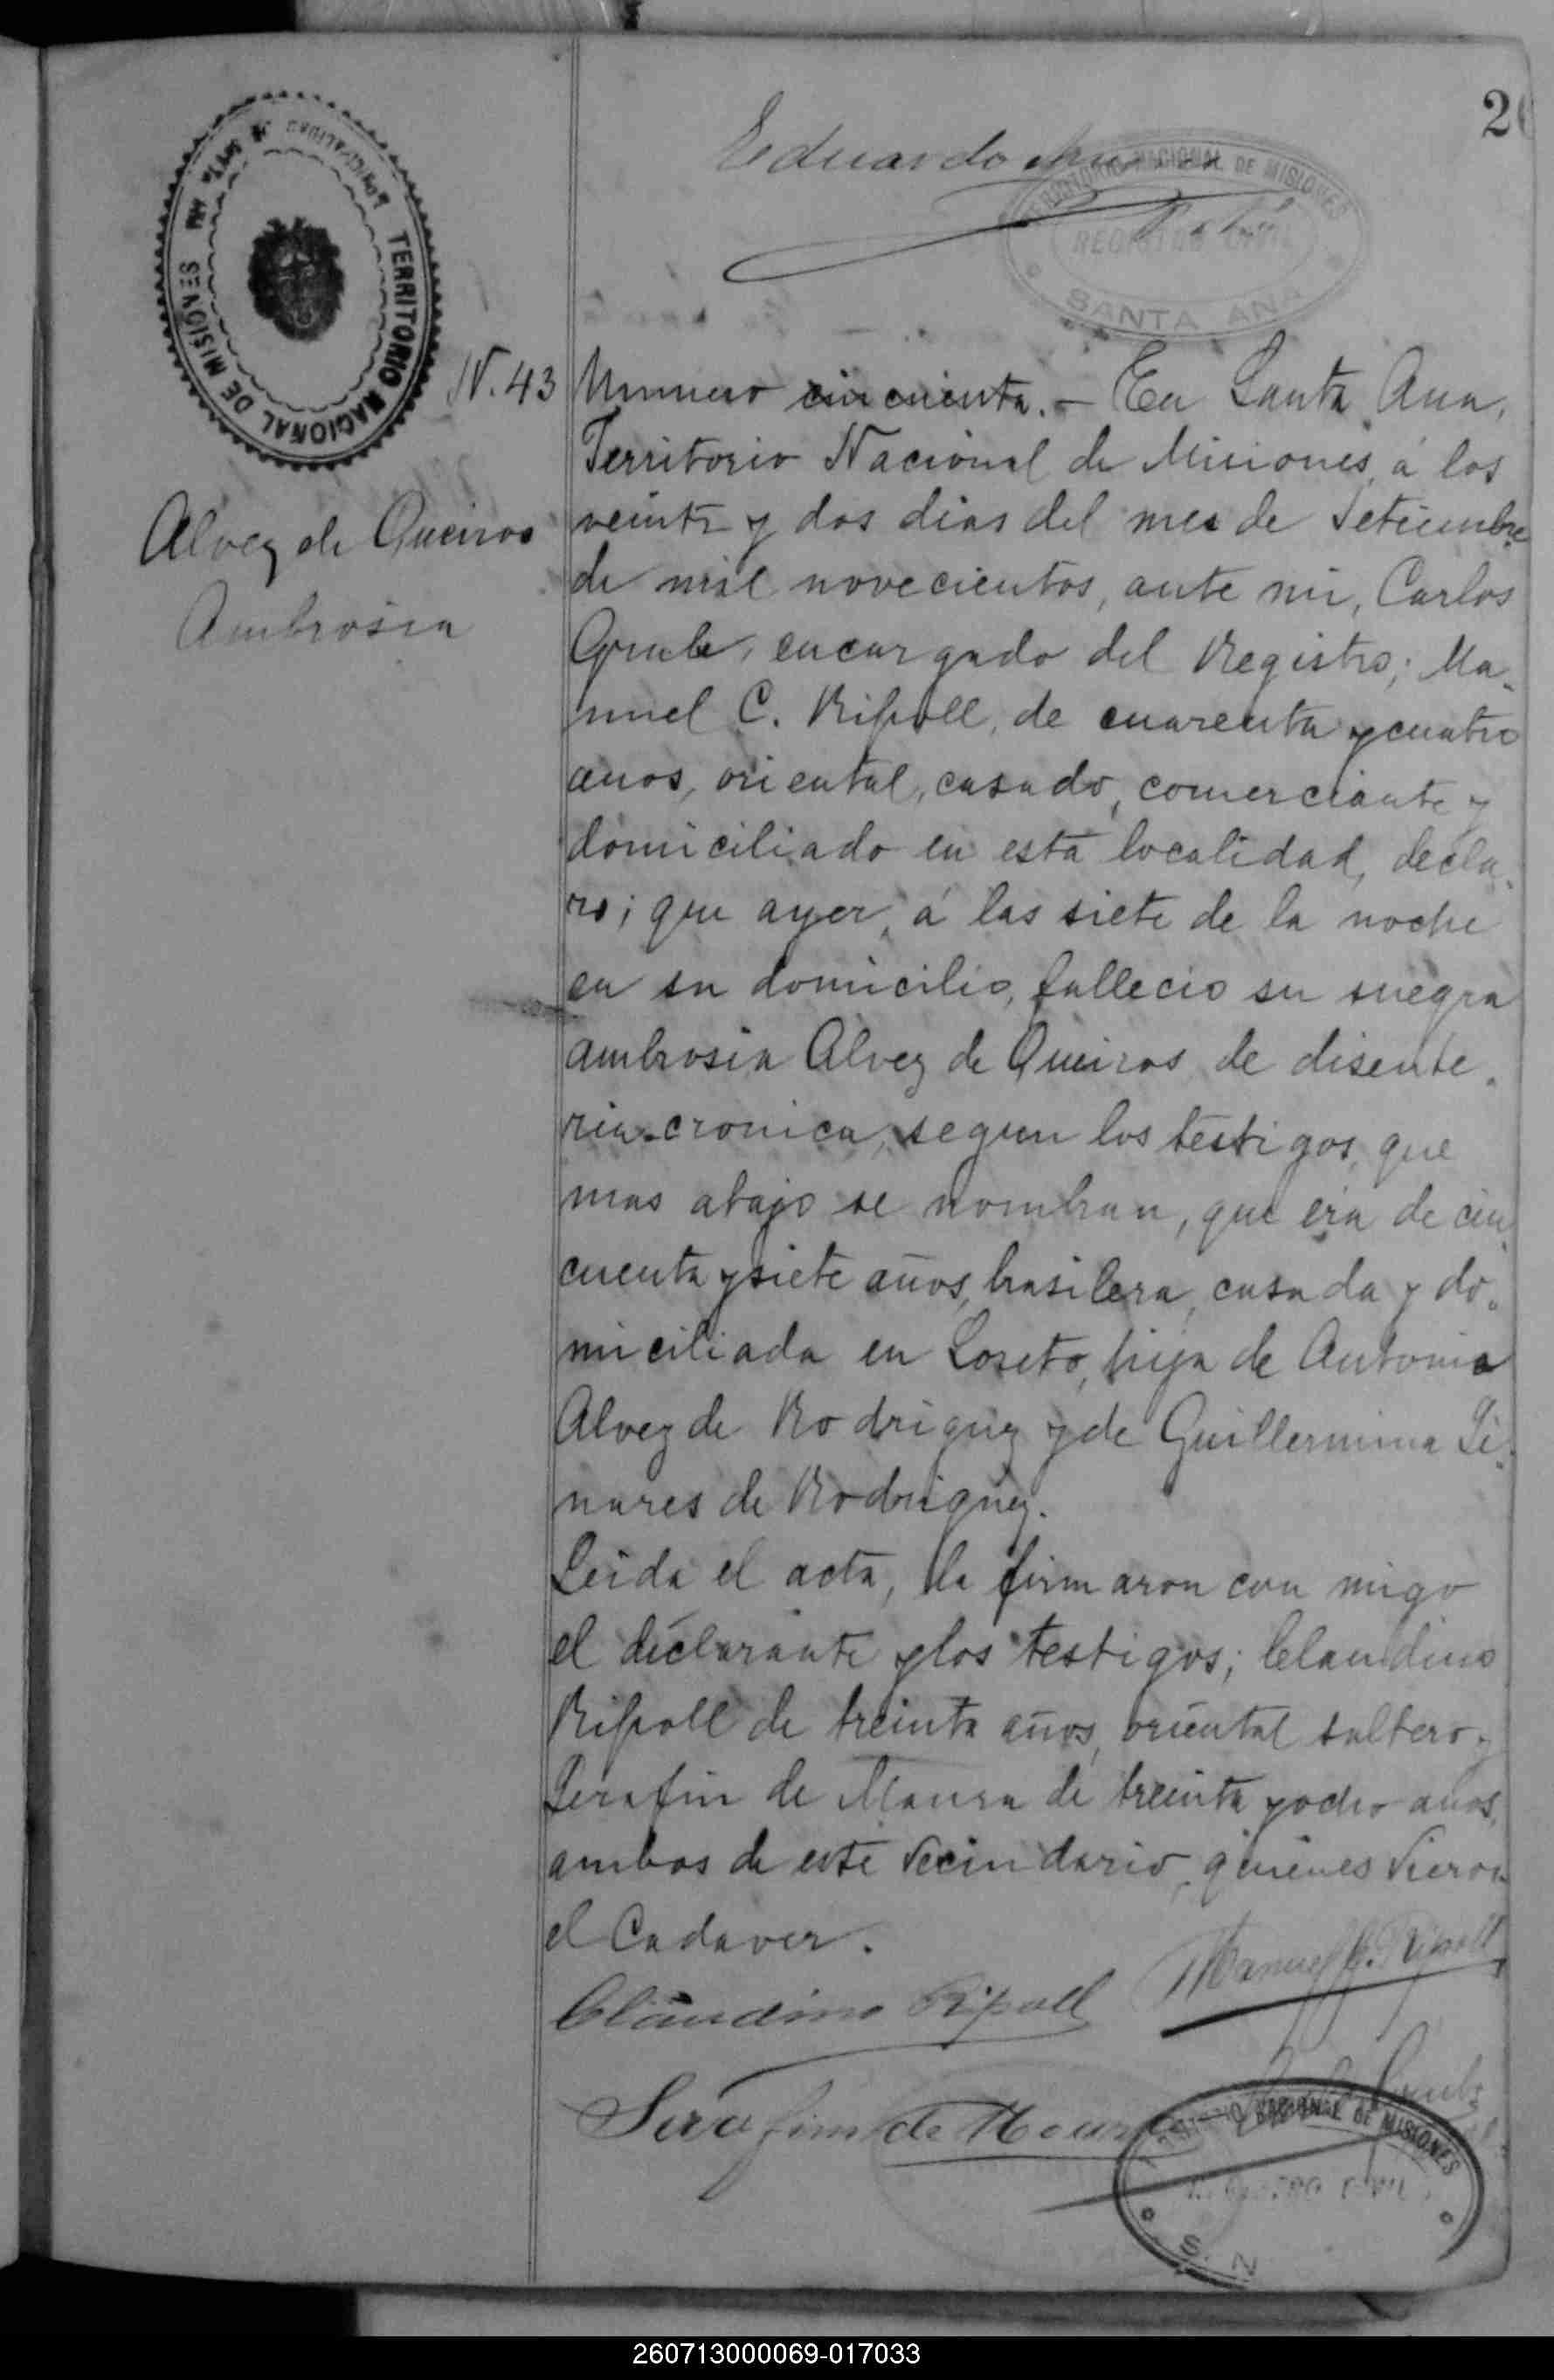 2
Eduardo
TERRITORIO NACIONAL DE MISIONES
REGISTRO CIVIL
SANTA ANA
TERRITORIO NACIONAL DE MISIONES
N. 43
Alvez de Queiros
Ambrosia
Numero cincuenta. - En Santa Ana,
Territorio Nacional de Misiones, á los
veinte y dos dias del mes de Setiembre
de mil novecientos, ante mi, Carlos
encargado del Registro; Ma-
nuel C. Ripoll, de cuarenta y cuatro
anos, oriental, casado, comerciante y
domiciliado en esta localidad, decla-
ro; que ayer, á las siete de la noche
en su domicilio, fallecio su suegra
Ambrosia Alvez de Queiros de disente-
ria cronica, segun los testigos, que
mas abajo se nombran, que era de cin-
cuenta y siete años, brasilera, casada y do-
miciliada en Loreto, hija de Antonio
Alvez de Rodriguez y de Guillermina Li-
nares de Rodriguez.
Leida el acta, la firmaron con migo
el declarante y los testigos; Claudino
Ripoll de treinta años, oriental soltero y
Serafin de Moura de treinta y ocho anos,
ambos de este vecindario, quienes vieron
el Cadaver.
Manuel C. Ripoll
Claudino Ripoll
Serafim de Moura
NACIONAL DE MISIONES
260713000069-017033